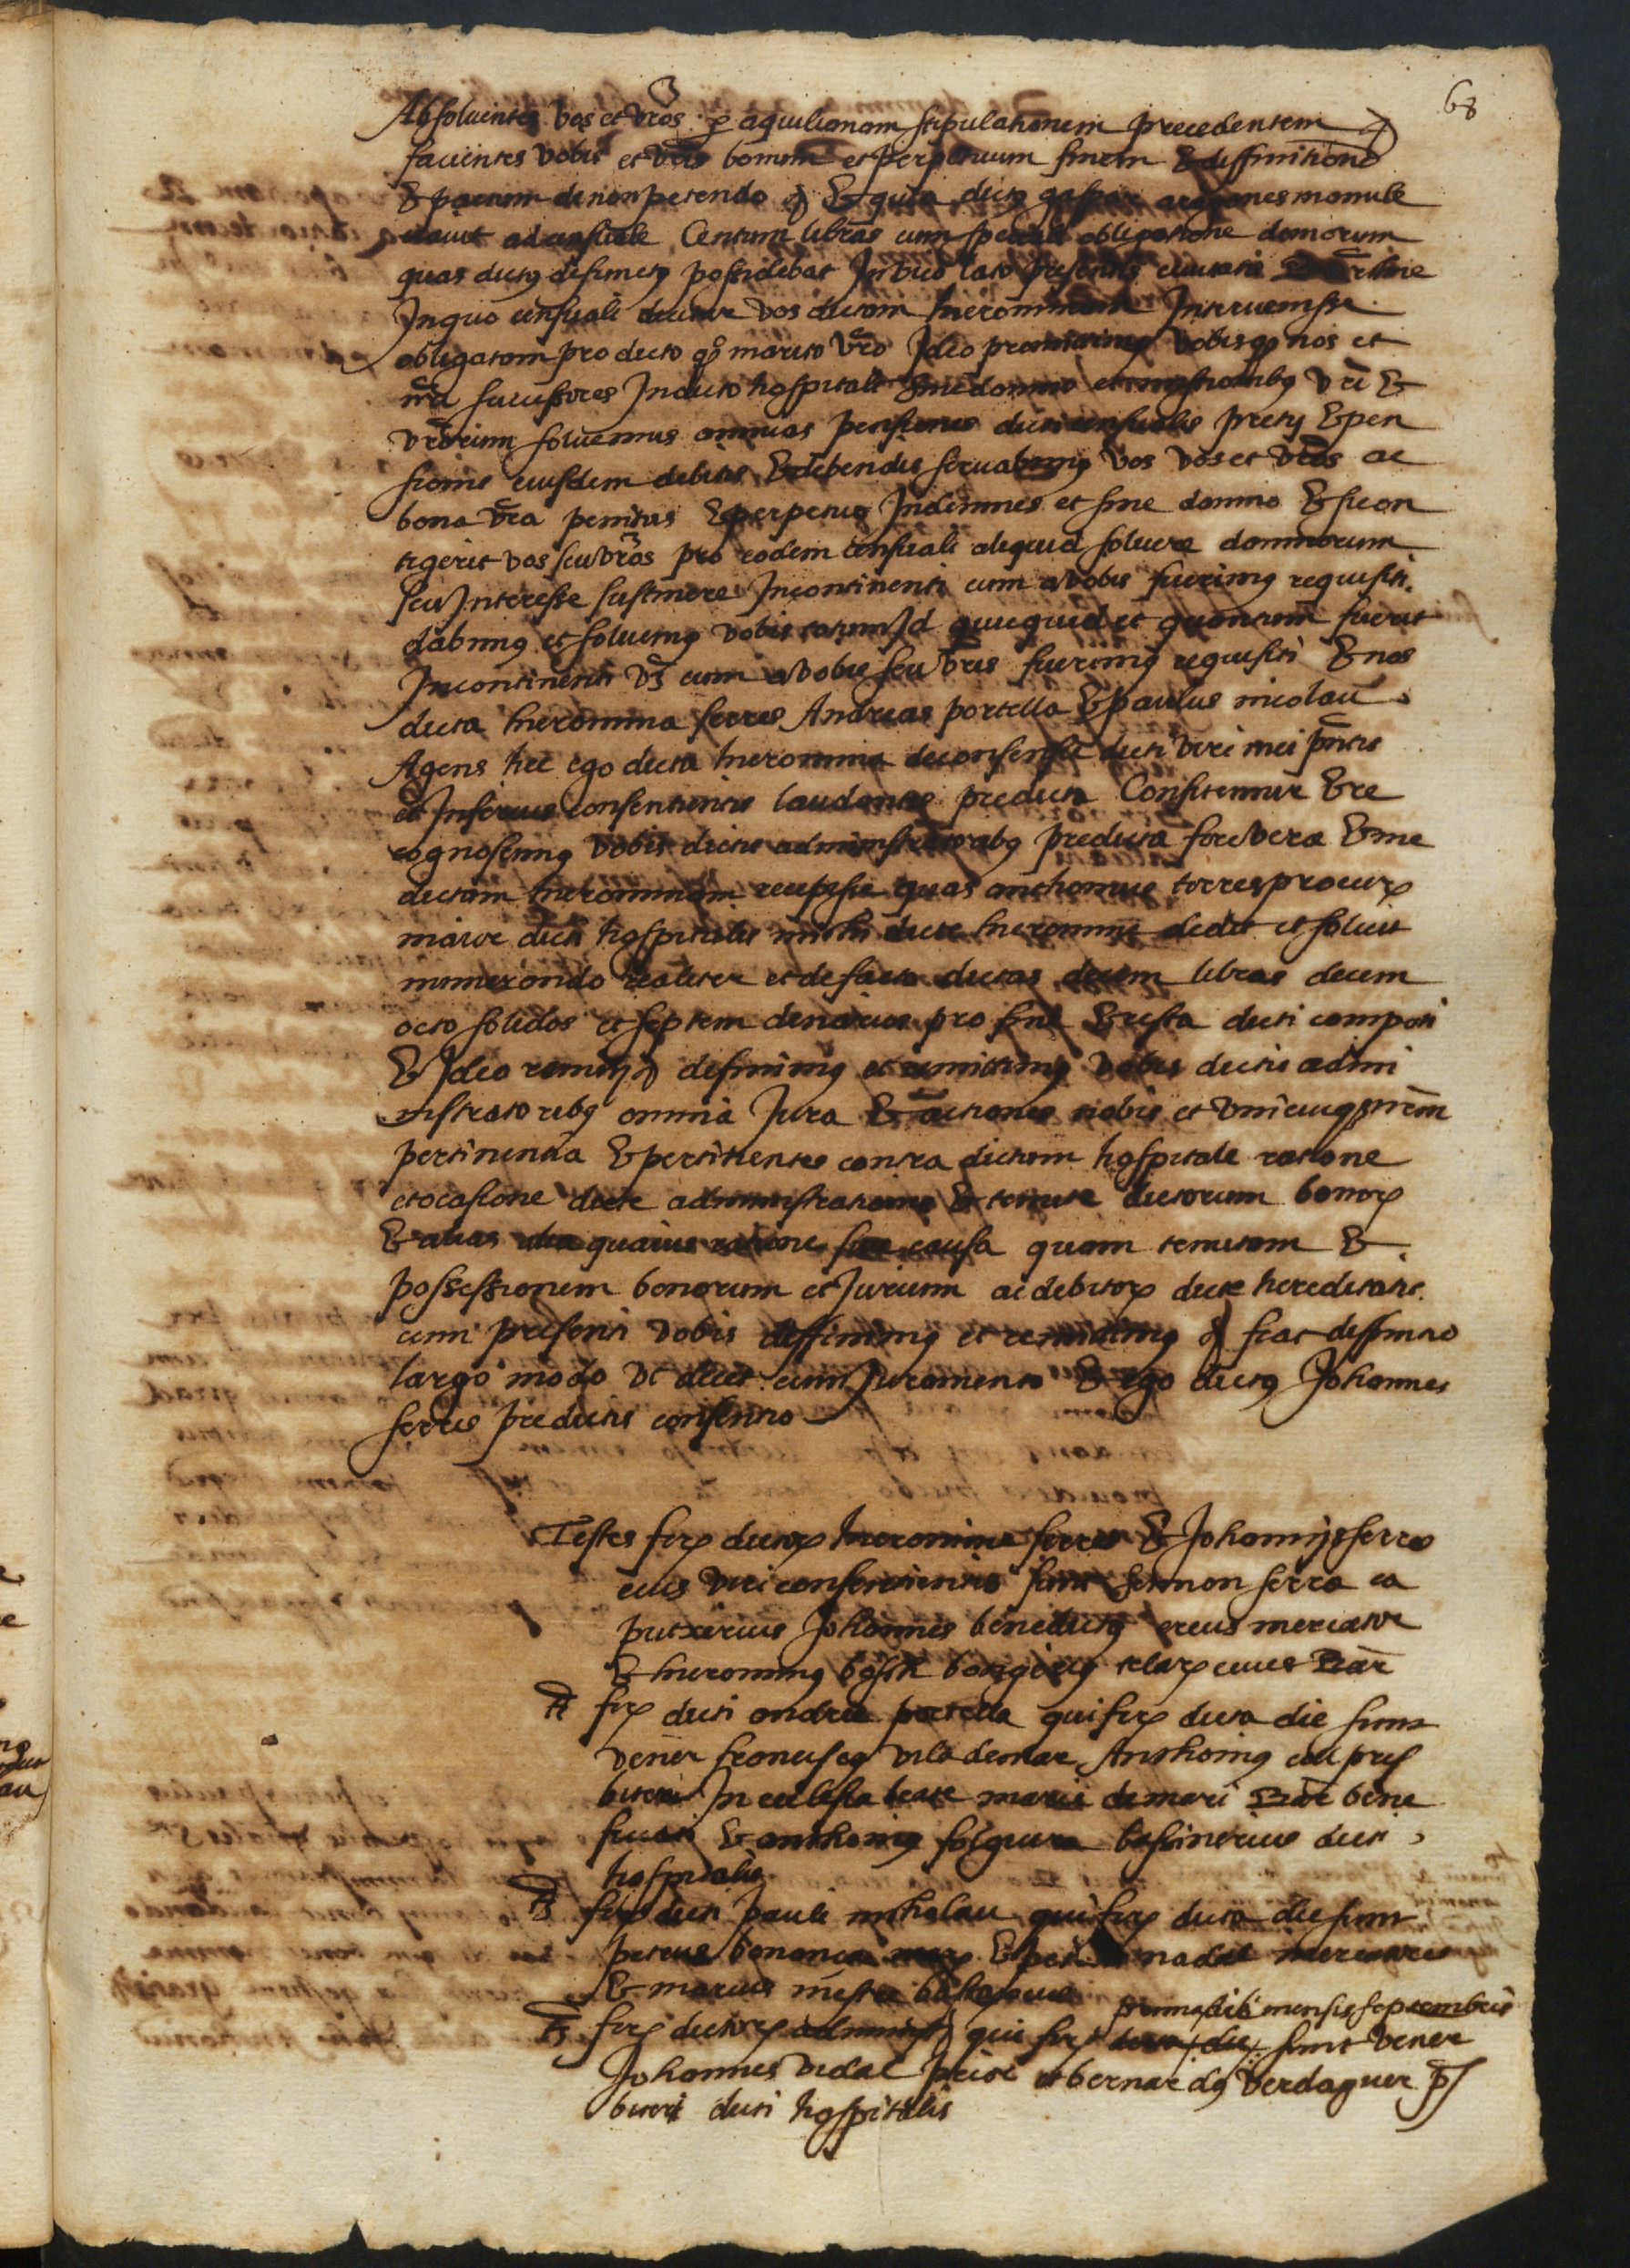 68
Absoluentes vos et vr̃os p aquilianam stipulationem precedentem
facientes vobis et vr̃is bonum et perpetuum finem & diffinitione
& pactum de non petendo & quia dictus gaspar aragones manule
uauit ad censuale Centum libras cum speciali obligatione domorum
quas dictus defunctus possidebat In vico lato presentis ciuitatis
In quo censuali dicitur vos dictam hieronimam Interuenisse
obligatam pro dicto qº marito vr̃o Ideo promittimus vobis q nos et
nr̃i successores In dicto hospitali sine damno et vr̃i &
vr̃orum soluemus annuas pensiones dicti censualis precij & pen
sionis eiusdem debitis & debendis seruabimus vos vos et vr̃os ac
bona vr̃a penitus & perpetuo Indemnes et sine damno & si con
tigerit vos seu vr̃os pro eodem censuali aliquid soluere damnorum
seu Interesse sustinere Incontinenti cum a vobis fuerimus requisiti
dabimus et soluemus vobis totum Id quicquid et quantum fuerit
Incontinenti vz cum a vobis seu vr̃is fuerimus requisiti & nos
dicta hieronima ferres Andreas portella & paulus nicolau
Agens hec ego dicta hieronima de consensu dicti viri mei pñtis
et Inferius consentientis laudantes predicta Confitemur & re
cognoscimus vobis dictis administratoribus predicta fore vera & me
dictam hieronimam recepisse quas anthonius torres procur
maior dicti hospitalis michi dicte hieronime dedit et soluit
numerando realiter et de facto dictas decem libras decem
octo solidos et septem denarios pro fine & resta dicti compoti
& Ideo definimus et remittimus vobis dictis admi
nistratoribus omnia Jura & actiones nobis et vnicuiq nr̃m
pertinentia & pertinentes contra dictum hospitale ratione
et ocasione dicte administrationis & tenute dictorum bonorᷣ
& alias alia quauis ratione siue causa quam tenutam &
possessionem bonorum et Jurium ac debitorᷣ dicte hereditatis
cum presenti vobis diffinimus et remittimus fiat diffinitio
largo modo vt decet cum Juramento & ego dictus Johannes
ferres predictis consentio
Testes firᷣ dictorᷣ hieronime ferres & Johannis ferres
eius viri consentientis sunt simon serra ca
putxerius Johannes benedictus ereus mercator
& hieronimus botigerius telarᷣ ciues
It firᷣ dicti andree portella qui firᷣ dicta die sunt
vener franciscus vilademar Anthonius coll pres
biteri In ecclesia beate marie de mari bene
ficiati & anthonius bassinerius dicti
hospitalis
It firᷣ dicti Pauli nicholau qui firᷣ dicta die sunt
petrus bonanca & nadal mercatores
& marcus
It firᷣ dictorᷣ administ qui firᷣ dicta die sunt vener
prima die mensis septembris
Johannes vidal prior et bernardus verdaguer p̃s
biteri dicti hospitalis